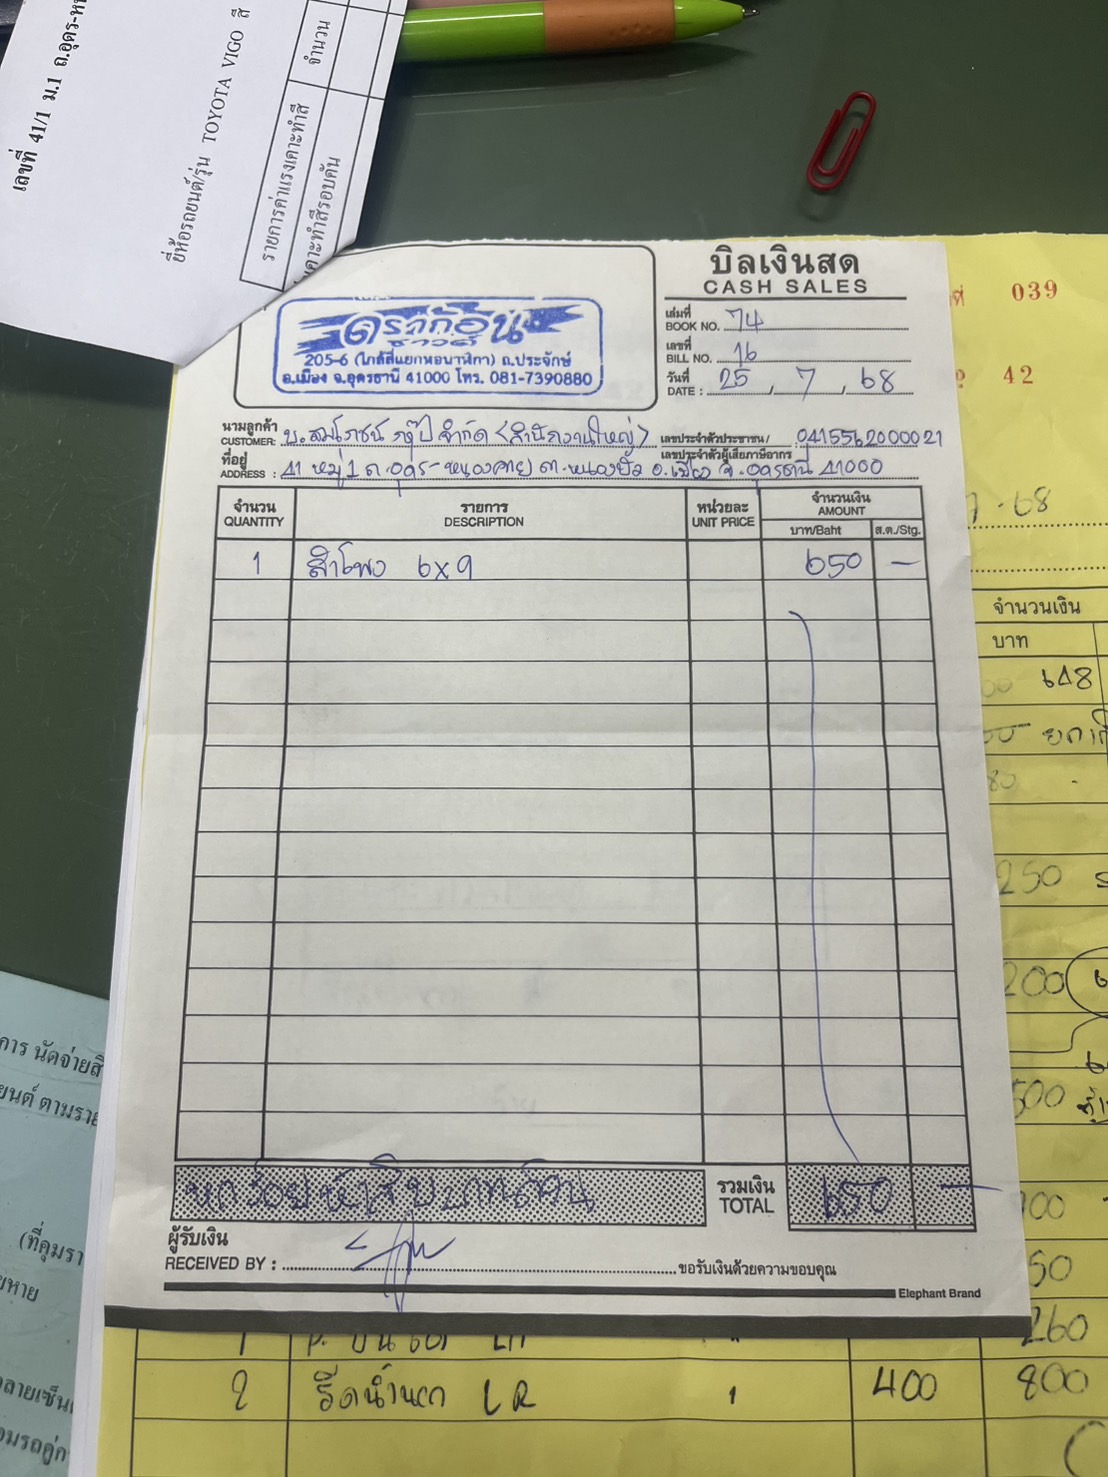 เลขที่ 41/1 ม.1 ถ.อุดร-ห
ยี่ห้อรถยนต์/รุ่น TOYOTA VIGO สี
รายการค่าแรงเคาะทำสี จำนวน
เคาะทำสีรอบคัน
บิลเงินสด
CASH SALES
ดราก้อน
ซาวด์
205-6 (ใกล้สี่แยกหอนาฬิกา) ถ.ประจักษ์
อ.เมือง จ.อุดรธานี 41000 โทร. 081-7390880
เล่มที่
BOOK NO. 74
เลขที่
BILL NO. 16
วันที่
DATE : 25, 7, 68
ที่ 039
42
นามลูกค้า
CUSTOMER: บ.สมโภชน์ กรุ๊ป จำกัด <สำนักงานใหญ่>
เลขประจำตัวประชาชน/
เลขประจำตัวผู้เสียภาษีอากร 0415562000021
ที่อยู่
ADDRESS : 41 หมู่ 1 ถ.อุดร-หนองคาย ต.หนองบัว อ.เมือง จ.อุดรธานี 41000
จำนวน
QUANTITY
รายการ
DESCRIPTION
หน่วยละ
UNIT PRICE
จำนวนเงิน
AMOUNT
บาท/Baht ส.ต./Stg.
1 ลำโพง 6x9 650 —
หกร้อยห้าสิบบาทถ้วน
รวมเงิน
TOTAL 650 —
ผู้รับเงิน
RECEIVED BY : ขอรับเงินด้วยความขอบคุณ
Elephant Brand
68
จำนวนเงิน
บาท
648
250
200
500
260
2 รีดน้ำนก LR 1 400 800
การ นัดจ่ายสิ
ยนต์ ตามราย
(ที่คุมรา
ยหาย